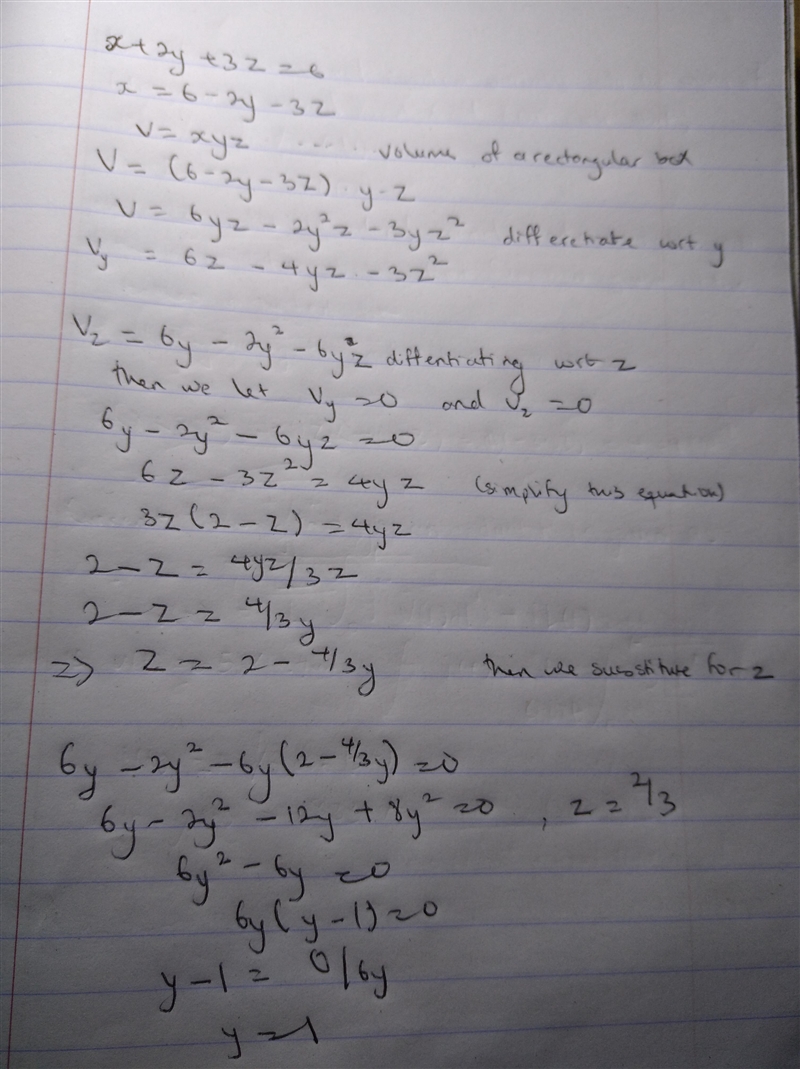 x + 2y + 3z = 6
x = 6 - 2y - 3z
V = xyz .... volume of a rectangular box
V = (6 - 2y - 3z) · y · z
V = 6yz - 2y²z - 3yz² differetiate wrt y
Vy = 6z - 4yz - 3z²
Vz = 6y - 2y² - 6yz diffentiating wrt z
then we let Vy = 0 and Vz = 0
6y - 2y² - 6yz = 0
6z - 3z² = 4yz (simplify this equation)
3z(2 - z) = 4yz
2 - z = 4yz/3z
2 - z = 4/3y
=> z = 2 - 4/3y then we substitute for z
6y - 2y² - 6y(2 - 4/3y) = 0
6y - 2y² - 12y + 8y² = 0 , z = 2/3
6y² - 6y = 0
6y(y - 1) = 0
y - 1 = 0/6y
y = 1